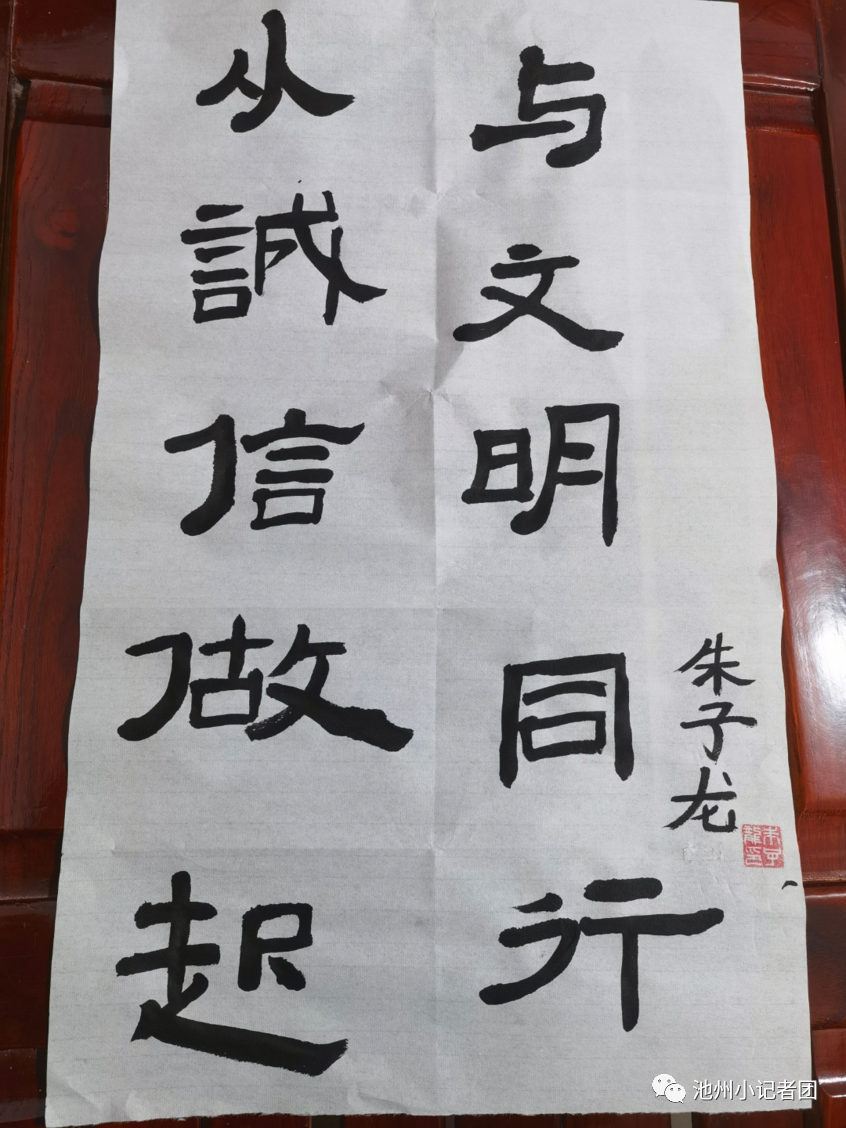 从誠信做起
与文明同行
朱子龙
朱子龍印
池州小记者团